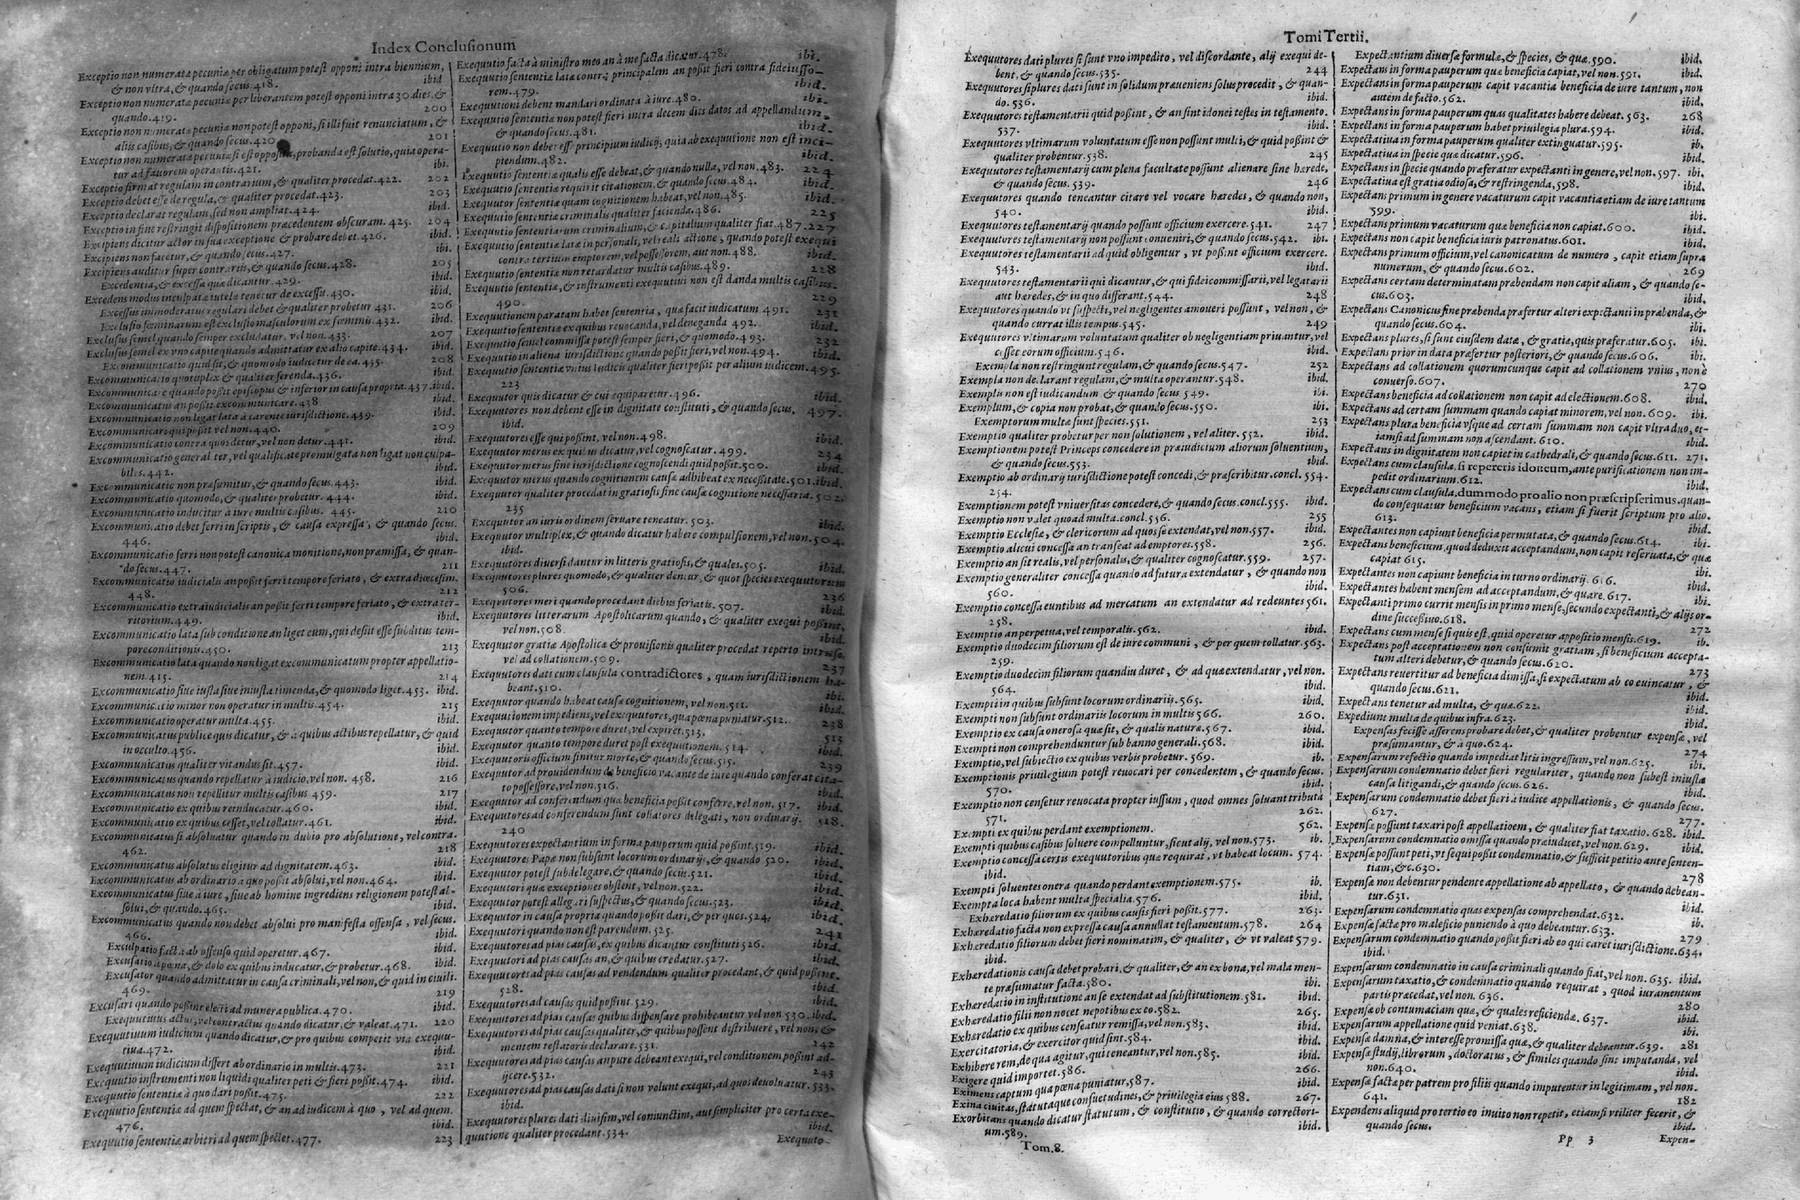 Index Conclusionum
Exceptio non numeratæ pecuniæ per obligatum potest opponi intra biennium,
& non vltra, & quando secus.418. ibid
Exceptio non numeratæ pecuniæ per liberantem potest opponi intra 30. dies, &
quando.419. 200
Exceptio non numeratæ pecuniæ non potest opponi, si illi fuit renunciatum, &
aliis casibus, & quando secus.420 201
Exceptio non numeratæ pecuniæ si est opposita, probanda est solutio, quia opera-
tur ad fauorem operantis.421. ibi.
Exceptio firmat regulam in contrarium, & qualiter procedat.422. 202
Exceptio debet esse de regula, & qualiter procedat.423. 203
Exceptio declarat regulam, sed non ampliat.424. ibid.
Exceptio in fine restringit dispositionem præcedentem obscuram. 425. 204
Excipiens dicitur actor in sua exceptione & probare debet.426. ibid.
Excipiens non facetur, & quando secus.427. ibi.
Excipiens auditur super contrariis, & quando secus.428. 205
Excedentia, & excessa quæ dicantur.429. ibid.
Excedens modus inculpatæ tutelæ tenetur de excessu.430. ibid.
Excessus immoderatus regulari debet & qualiter probetur 431. 206
Exclusio fœminarum est exclusio masculorum ex fœminis.432. ibid.
Exclusus semel quando semper excludatur, vel non.433. 207
Exclusus semel ex vno capite quando admittatur ex alio capite.434. ibid.
Excommunicatio quid sit, & quomodo iudicetur de ea.435. 208
Excommunicatio quotuplex & qualiter ferenda.436. ibid.
Excommunicare quando possit episcopus & inferior in causa propria.437. ibid.
Excommunicatus an possit excommunicare.438 ibid.
Excommunicatio non ligat lata à carente iurisdictione.439. ibid.
Excommunicari qui possit vel non.440. 209
Excommunicatio contra quos detur, vel non detur.441. ibid.
Excommunicatio generaliter, vel qualificatè promulgata non ligat non culpa-
biles.442. ibid.
Excommunicatio non præsumitur, & quando secus.443. ibid.
Excommunicatio quomodo, & qualiter probetur. 444. ibid.
Excommunicatio inducitur à iure multis casibus. 445. 210
Excommunicatio debet ferri in scriptis, & causa expressa, & quando secus.
446. ibid.
Excommunicatio ferri non potest canonica monitione, non præmissa, & quan-
do secus.447. 211
Excommunicatio iudicialis an possit ferri tempore feriato, & extra diœcesim.
448. 212
Excommunicatio extraiudicialis an possit fieri tempore feriato, & extra ter-
ritorium.449. ibid.
Excommunicatio lata sub conditione an liget eum, qui desiit esse subditus tem-
pore conditionis.450. 213
Excommunicatio lata quando non ligat excommunicatum propter appellatio-
nem.415. 214
Excommunicatio siue iusta siue iniusta timenda, & quomodo liget.453. ibid.
Excommunicatio minor non operatur in multis.454. 215
Excommunicatio operatur multa.455. ibid.
Excommunicatus publicè quis dicatur, & à quibus actibus repellatur, & quid
in occulto.456. ibid.
Excommunicatus qualiter vitandus sit.457. ibid.
Excommunicatus quando repellatur à iudicio, vel non. 458. 216
Excommunicatus non repellitur multis casibus 459. 217
Excommunicatio ex quibus reinducatur.460. ibid.
Excommunicatio ex quibus cesset, vel tollatur.461. ibid.
Excommunicatus si absoluatur quando in dubio pro absolutione, vel contra.
462. 218
Excommunicatus absolutus eligitur ad dignitatem.463. ibid.
Excommunicatus ab ordinario à quo possit absolui, vel non.464. ibid.
Excommunicatus siue à iure, siue ab homine ingrediens religionem potest ab-
solui, & quando.465. ibid.
Excommunicatus quando non debet absolui pro manifesta offensa, vel secus.
466. ibid.
Exculpatio facta ab offenso quid operetur.467. ibid.
Excusatio à pœna, & dolo ex quibus inducatur, & probetur.468. ibid.
Excusator quando admittatur in causa criminali, vel non, & quid in ciuili.
469. 219
Excusari quando possint electi ad munera publica.470. ibid.
Exequutiuus actus, vel contractus quando dicatur, & valeat.471. 220
Exequutiuum iudicium quando dicatur, & pro quibus competit via exequu-
tiua.472. ibid.
Exequutiuum iudicium differt ab ordinario in multis.473. 221
Exequutio instrumenti non liquidi qualiter peti & fieri possit.474. ibid.
Exequutio sententiæ à quo dari possit.475. 222
Exequutio sententiæ ad quem spectat, & an ad iudicem à quo, vel ad quem.
476. ibid.
Exequutio sententiæ arbitri ad quem spectet.477. 223
Exequutio facta à ministro meo an à me facta dicatur.478. ibi.
Exequutio sententiæ latæ contra principalem an possit fieri contra fideiusso-
rem.479. ibid.
Exequutioni debent mandari ordinata à iure.480. ibi.
Exequutio sententiæ non potest fieri intra decem dies datos ad appellandum,
& quando secus.481. ibid.
Exequutio non debet esse principium iudicij, quia ab exequutione non est inci-
piendum.482. ibid.
Exequutio sententiæ qualis esse debeat, & quando nulla, vel non.483. 224
Exequutio sententiæ requirit citationem, & quando secus.484. ibid.
Exequutor sententiæ quam cognitionem habeat, vel non.485. ibid.
Exequutio sententiæ criminalis qualiter facienda.486. 225
Exequutio sententiarum criminalium, & capitalium qualiter fiat.487. 227
Exequutio sententiæ latæ in personali, vel reali actione, quando potest exequi
contra tertium emptorem, vel possessorem, aut non.488. ibid.
Exequutio sententiæ non retardatur multis casibus.489. 228
Exequutio sententiæ, & instrumenti exequutiui non est danda multis casibus.
490. 229
Exequutionem paratam habet sententia, quæ facit iudicatum 491. 231
Exequutio sententiæ ex quibus reuocanda, vel deneganda 492. ibid.
Exequutio semel commissa potest semper fieri, & quomodo.493. 232
Exequutio in aliena iurisdictione quando possit fieri, vel non.494. ibid.
Exequutio sententiæ vnius Iudicis qualiter fieri possit per alium iudicem.495.
223
Exequutor quis dicatur & cui equiparetur.496. ibid.
Exequutores non debent esse in dignitate constituti, & quando secus. 497.
ibid.
Exequutores esse qui possint, vel non.498. ibid.
Exequutor merus ex quibus dicatur, vel cognoscatur. 499. 234
Exequutor merus sine iurisdictione cognoscendi quid possit.500. ibid.
Exequutor merus quando cognitionem causæ adhibeat ex necessitate.501. ibid.
Exequutor qualiter procedat in gratiosis sine causæ cognitione necessaria.502.
235
Exequutor an iuris ordinem seruare teneatur. 503. ibid.
Exequutor multiplex, & quando dicatur habere compulsionem, vel non.504.
ibid.
Exequutores diuersi dantur in litteris gratiosis, & quales.505. ibid.
Exequutores plures quomodo, & qualiter dentur, & quot species exequutorum
506. 236
Exequutores meri quando procedant diebus feriatis. 507. ibid.
Exequutor litterarum Apostolicarum quando, & qualiter exequi possint,
vel non.508. ibid.
Exequutor gratiæ Apostolicæ & prouisionis qualiter procedat reperto intruso
vel ad collationem.509. 237
Exequutor dati cum clausula contradictores, quam iurisdictionem ha-
beant.510. ibi.
Exequutor quando habeat causæ cognitionem, vel non.511. ibid.
Exequutionem impediens, vel exequutores, qua pœna puniatur.512. 238
Exequutor quanto tempore duret, vel expiret.513. 513
Exequutor quanto tempore duret post exequutionem. 514. ibid.
Exequutoris officium finitur morte, & quando secus.515. 239
Exequutor ad prouidendum de beneficio vacante de iure quando conferat cita-
to possessore, vel non.516. ibid.
Exequutor ad conferendum qua beneficia possit conferre, vel non.517. ibid.
Exequutores ad conferendum sunt collatores delegati, non ordinarij. 518.
240
Exequutores expectantium in forma pauperum quid possint.519. ibid.
Exequutores Papæ non subsunt locorum ordinarijs, & quando 520. ibid.
Exequutor potest subdelegare, & quando secus.521. ibid.
Exequutori quæ exceptiones obstent, vel non.522. ibid.
Exequutor potest allegari suspectus, & quando secus.523. ibid.
Exequutor in causa propria quando possit dari, & per quos.524. ibid.
Exequutori quando non est parendum. 525. 241
Exequutores ad pias causas, ex quibus dicantur constituti 526. ibid.
Exequutori ad pias causas an, & quibus credatur.527. ibid.
Exequutores ad pias causas ad vendendum qualiter procedant, & quid possint.
528. ibid.
Exequutores ad causas quid possint.529. ibid.
Exequutores ad pias causas quibus dispensare prohibeantur vel non 530. ibid.
Exequutores ad pias causas qualiter, & quibus possent distribuere, vel non, &
mentem testatoris declarare.531. 242
Exequutores ad pias causas an pure debeant exequi, vel conditionem possint ad-
ijcere.532. 243
Exequutores ad pias causas dati si non volunt exequi, ad quos deuoluatur.533.
ibid. ibid.
Exequutores plures dati diuisim, vel coniunctim, aut simpliciter pro certa exe-
quutione qualiter procedant.534. ibid.
Exequuto-
Tomi Tertii.
Exequutores dati plures si sunt vno impedito, vel discordante, alij exequi de-
bent, & quando secus.535. 244
Exequutores si plures dati sunt in solidum præueniens solus procedit, & quan-
do. 536. ibid.
Exequutores testamentarij quid possint, & an sint idonei testes in testamento.
537. ibid.
Exequutores vltimarum voluntatum esse non possunt multi, & quid possint &
qualiter probentur.538. 245
Exequutores testamentarij cum plena facultate possunt alienare sine hærede,
& quando secus.539. 246
Exequutores quando teneantur citare vel vocare hæredes, & quando non,
540. ibid.
Exequutores testamentarij quando possunt officium exercere.541. 247
Exequutores testamentarij non possunt conueniri, & quando secus.542. ibi.
Exequutores testamentarii ad quid obligentur, vt possint officium exercere.
543. ibid.
Exequutores testamentarii qui dicantur, & qui fideicommissarii, vel legatarii
aut hæredes, & in quo differant.544. 248
Exequutores quando vt suspecti, vel negligentes amoueri possunt, vel non, &
quando currat illis tempus.545. 249
Exequutores vltimarum voluntatum qualiter ob negligentiam priuantur, vel
cesset eorum officium.546. ibid.
Exempla non restringunt regulam, & quando secus.547. 252
Exempla non declarant regulam, & multa operantur.548. ibid.
Exemplis non est iudicandum & quando secus 549. ibi.
Exemplum, & copia non probat, & quando secus.550. ibi.
Exemptorum multæ sunt species.551. 253
Exemptio qualiter probetur per non solutionem, vel aliter. 552. ibid.
Exemptionem potest Princeps concedere in præiudicium aliorum soluentium,
& quando secus.553. ibid.
Exemptio ab ordinarij iurisdictione potest concedi, & præscribitur.concl. 554.
254. ibid.
Exemptionem potest vniuersitas concedere, & quando secus.concl.555. ibid.
Exemptio non valet quoad multa.concl.556. 255
Exemptio Ecclesiæ, & clericorum ad quos se extendat, vel non.557. ibid.
Exemptio alicui concessa an transeat ad emptores.558. 256.
Exemptio an sit realis, vel personalis, & qualiter cognoscatur.559. 257.
Exemptio generaliter concessa quando ad futura extendatur, & quando non
560. ibid.
Exemptio concessa euntibus ad mercatum an extendatur ad redeuntes 561.
258.
Exemptio an perpetua, vel temporalis.562. ibid.
Exemptio duodecim filiorum est de iure communi, & per quem tollatur.563.
259. ibid.
Exemptio duodecim filiorum quandiu duret, & ad quæ extendatur, vel non.
564. ibid.
Exempti in quibus subsunt locorum ordinariis.565. ibid.
Exempti non subsunt ordinariis locorum in multis 566. 260.
Exemptio ex causa onerosa quæ sit, & qualis natura.567. ibid.
Exempti non comprehenduntur sub banno generali. 568. ibid.
Exemptio, vel subiectio ex quibus verbis probetur. 569. ibi.
Exemptionis priuilegium potest reuocari per concedentem, & quando secus.
570. ibid.
Exemptio non censetur reuocata propter iussum, quod omnes soluant tributa
571. 262.
Exempti ex quibus perdant exemptionem. 562.
Exempti quibus casibus soluere compelluntur, sicut alij, vel non.573. ib.
Exemptio concessa certis exequutoribus quæ requirat, vt habeat locum. 574.
ibid.
Exempti soluentes onera quando perdant exemptionem.575. ib.
Exempta loca habent multa specialia.576. ibid.
Exhæredatio filiorum ex quibus causis fieri possit.577. 263.
Exhæredatio facta non expressa causa annullat testamentum.578. 264
Exhæredatio filiorum debet fieri nominatim, & qualiter, & vt valeat 579.
ibid.
Exhæredationis causa debet probari, & qualiter, & an ex bona, vel mala men-
te præsumatur facta.580. ibi.
Exhæredatio in institutione an se extendat ad substitutionem.581. ibid.
Exhæredatio filii non nocet nepotibus ex eo.582. 265.
Exhæredatio ex quibus censeatur remissa, vel non.583. ibi.
Exercitatoria, & exercitor quid sint.584. ibid.
Exhibere rem, de qua agitur, qui teneantur, vel non.585. ibid.
Exigere quid importet.586. 266.
Eximens captum qua pœna puniatur.587. ibid.
Exina ciuitas, statutaque consuetudines, & priuilegia eius 588. 267.
Exorbitans quando dicatur statutum, & constitutio, & quando correctori-
um.589. ibid.
Tom.8.
Expectantium diuersæ formulæ, & species, & quæ.590. ibid.
Expectans in forma pauperum quæ beneficia capiat, vel non.591. ibid.
Expectans in forma pauperum capit vacantia beneficia de iure tantum, non
autem de facto.562. ibid,
Expectans in forma pauperum quas qualitates habere debeat. 563. 268
Expectans in forma pauperum habet priuilegia plura.594. ibid.
Expectatiua in forma pauperum qualiter extinguatur.595. ib.
Expectatiua in specie quæ dicatur.596. ibid.
Expectans in specie quando præferatur expectanti in genere, vel non.597. ibi.
Expectatiua est gratia odiosa, & restringenda, 598. ibid.
Expectans primum in genere vacaturum capit vacantia etiam de iure tantum
599. ibi.
Expectans primum vacaturum quæ beneficia non capiat.600. ibid.
Expectans non capit beneficia iuris patronatus.601. ibi.
Expectans primum officium, vel canonicatum de numero, capit etiam supra
numerum, & quando secus.602. 269
Expectans certam determinatam præbendam non capit aliam, & quando se-
cus.603. ibid,
Expectans Canonicus sine præbenda præfertur alteri expectanti in præbenda, &
quando secus.604. ibi.
Expectans plures, si sunt eiusdem datæ, & gratiæ, quis præferatur.605. ibi.
Expectans prior in data præfertur posteriori, & quando secus.606. ibi.
Expectans ad collationem quorumcunque capit ad collationem vnius, non è
conuerso.607. 270
Expectans beneficia ad collationem non capit ad electionem.608. ibid.
Expectans ad certam summam quando capiat minorem, vel non. 609. ibi.
Expectans plura beneficia vsque ad certam summam non capit vltra duo, et-
iamsi ad summam non ascendant. 610. ibid.
Expectans in dignitatem non capiet in cathedrali, & quando secus.611. 271.
Expectans cum clausula. si repereris idoneum, ante purificationem non im-
pedit ordinarium.612. ibid.
Expectans cum clausula, dummodo pro alio non præscripserimus. quan-
do consequatur beneficium vacans, etiam si fuerit scriptum pro alio.
613. ibid.
Expectantes non capiunt beneficia permutata, & quando secus.614. ibi.
Expectans beneficium, quod deduxit acceptandum, non capit reseruata, & quæ
capiat 615. ibid.
Expectantes non capiunt beneficia in turno ordinarij. 616. ibi.
Expectantes habent mensem ad acceptandum, & quare. 617. ibid.
Expectanti primo currit mensis in primo mense, secundo expectanti, & alijs or-
dine successiuo.618. ibi.
Expectans cum mense si quis est, quid operetur appositio mensis.619. 272
Expectans post acceptationem non consumit gratiam, si beneficium accepta-
tum alteri debetur, & quando secus.620. ib.
Expectans reuertitur ad beneficia dimissa, si expectatum ab eo euincatur, &
quando secus.621. 273
Expectans tenetur ad multa, & quæ.622. ibid.
Expediunt multa de quibus infra.623. ibid.
Expensas fecisse asserens probare debet, & qualiter probentur expensæ, vel
præsumantur, & à quo.624. 274
Expensarum refectio quando impediat litis ingressum, vel non.625. ibi.
Expensarum condemnatio debet fieri regulariter, quando non subest iniusta
causa litigandi, & quando secus.626. ibid.
Expensarum condemnatio debet fieri à iudice appellationis, & quando secus.
627. 277.
Expensæ possunt taxari post appellationem, & qualiter fiat taxatio. 628. ibid.
Expensarum condemnatio omissa quando præiudicet, vel non.629. ibi.
Expensæ possunt peti, vt sequi possit condemnatio, & sufficit petitio ante senten-
tiam, &c.630. 278
Expensæ non debentur pendente appellatione ab appellato, & quando debean-
tur.631. ibid.
Expensarum condemnatio quas expensas comprehendat.632. ibid.
Expensæ factæ pro maleficio puniendo à quo debeantur.633. ib.
Expensarum condemnatio quando possit fieri ab eo qui caret iurisdictione.634.
ibid. 279
Expensarum condemnatio in causa criminali quando fiat, vel non. 635. ibid.
Expensarum taxatio, & condemnatio quando requirat, quod iuramentum
partis præcedat, vel non. 636. ibid.
Expensæ ob contumaciam quæ, & quales reficiendæ. 637. 280
Expensarum appellatione quid veniat.638. ibi.
Expensæ damna, & interesse promissa quæ, & qualiter debeantur.639. 281
Expensæ studij, librorum, doctoratus, & similes quando sint imputandæ, vel
non.640. ibid.
Expensæ factæ per patrem pro filiis quando imputentur in legitimam, vel non.
641. 182
Expendens aliquid pro tertio eo inuito non repetit, etiamsi vtiliter fecerit, &
quando secus. ibid.
Pp 3 Expen-